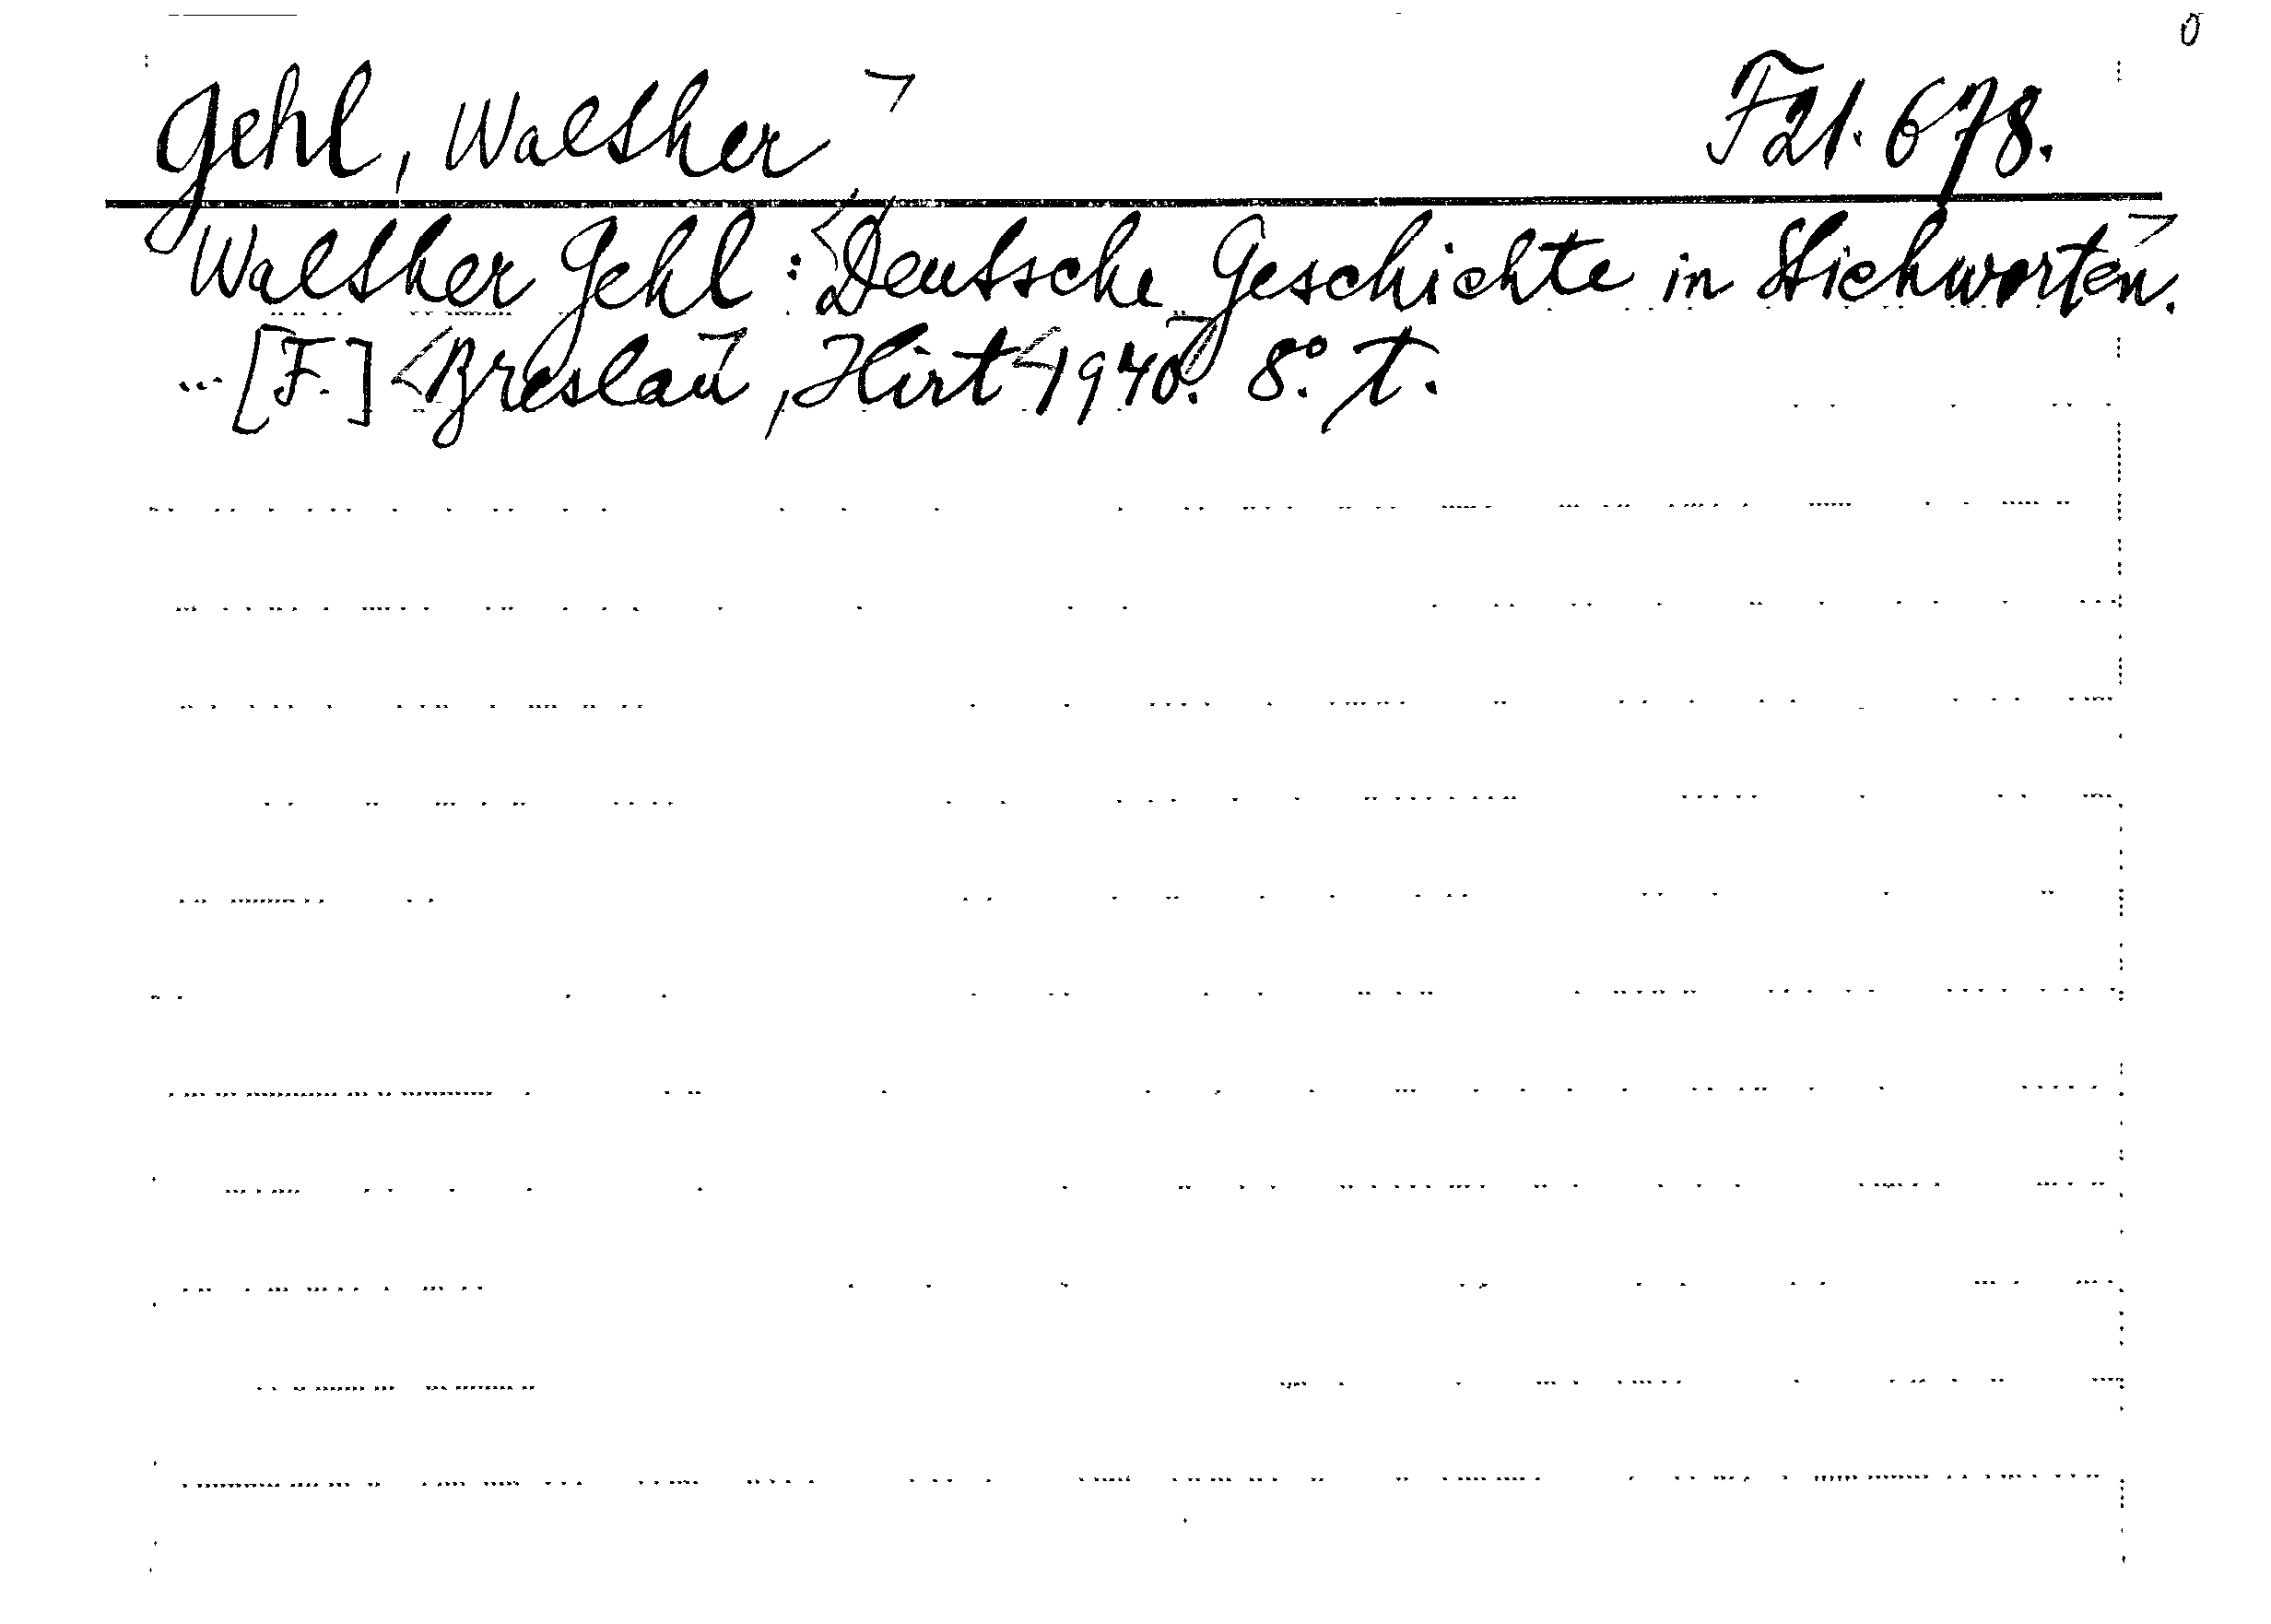 Gehl, Walther F21.678.
Walther Gehl: Deutsche Geschichte in Stichworten.
... [F.] Breslau, Hirt 1940. 8° T.